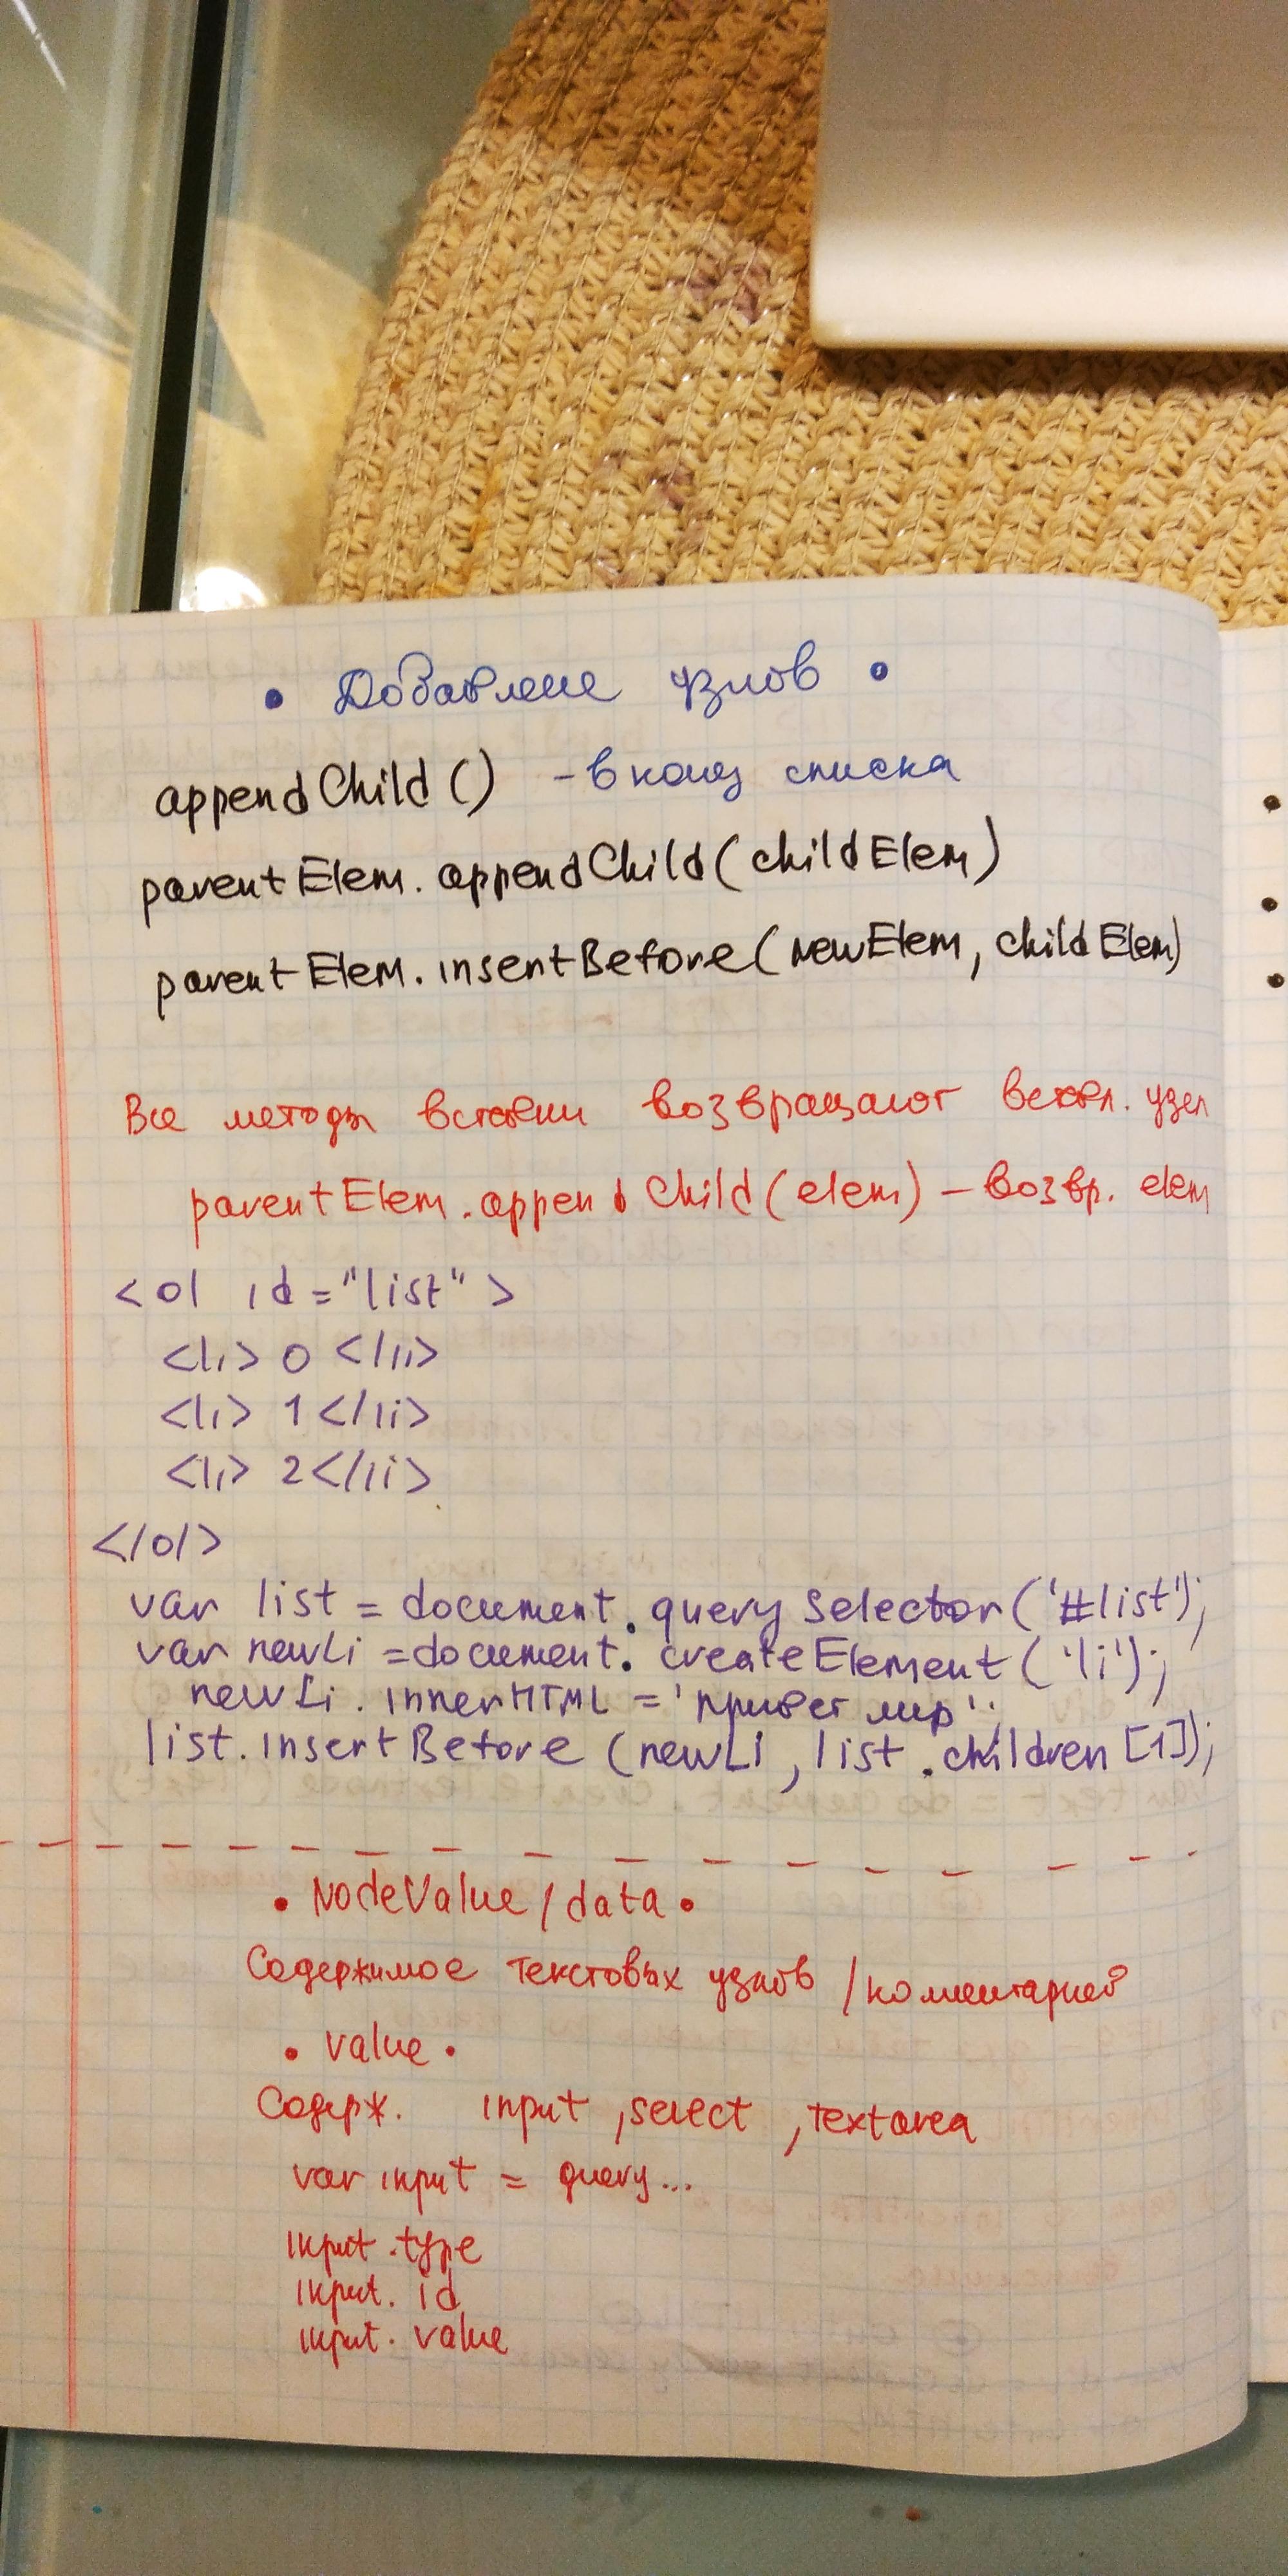 • Добавлене узлов •
appendChild() - в конец списка
parentElem.appendChild(childElem)
parentElem.insertBefore(newElem, childElem)
Все методы вставки возвращают вставл. узел
parentElem.appendChild(elem) - возвр. elem
<ol id="list">
<li> 0 </li>
<li> 1 </li>
<li> 2 </li>
</ol>
var list = document.querySelector('#list');
var newLi = document.createElement('li');
newLi.innerHTML = 'привет мир';
list.insertBefore(newLi, list.children[1]);
• NodeValue / data •
Содержимое текстовых узлов / коментарией
• value •
Содерж. input, select, textarea
var input = query...
input.type
input.id
input.value